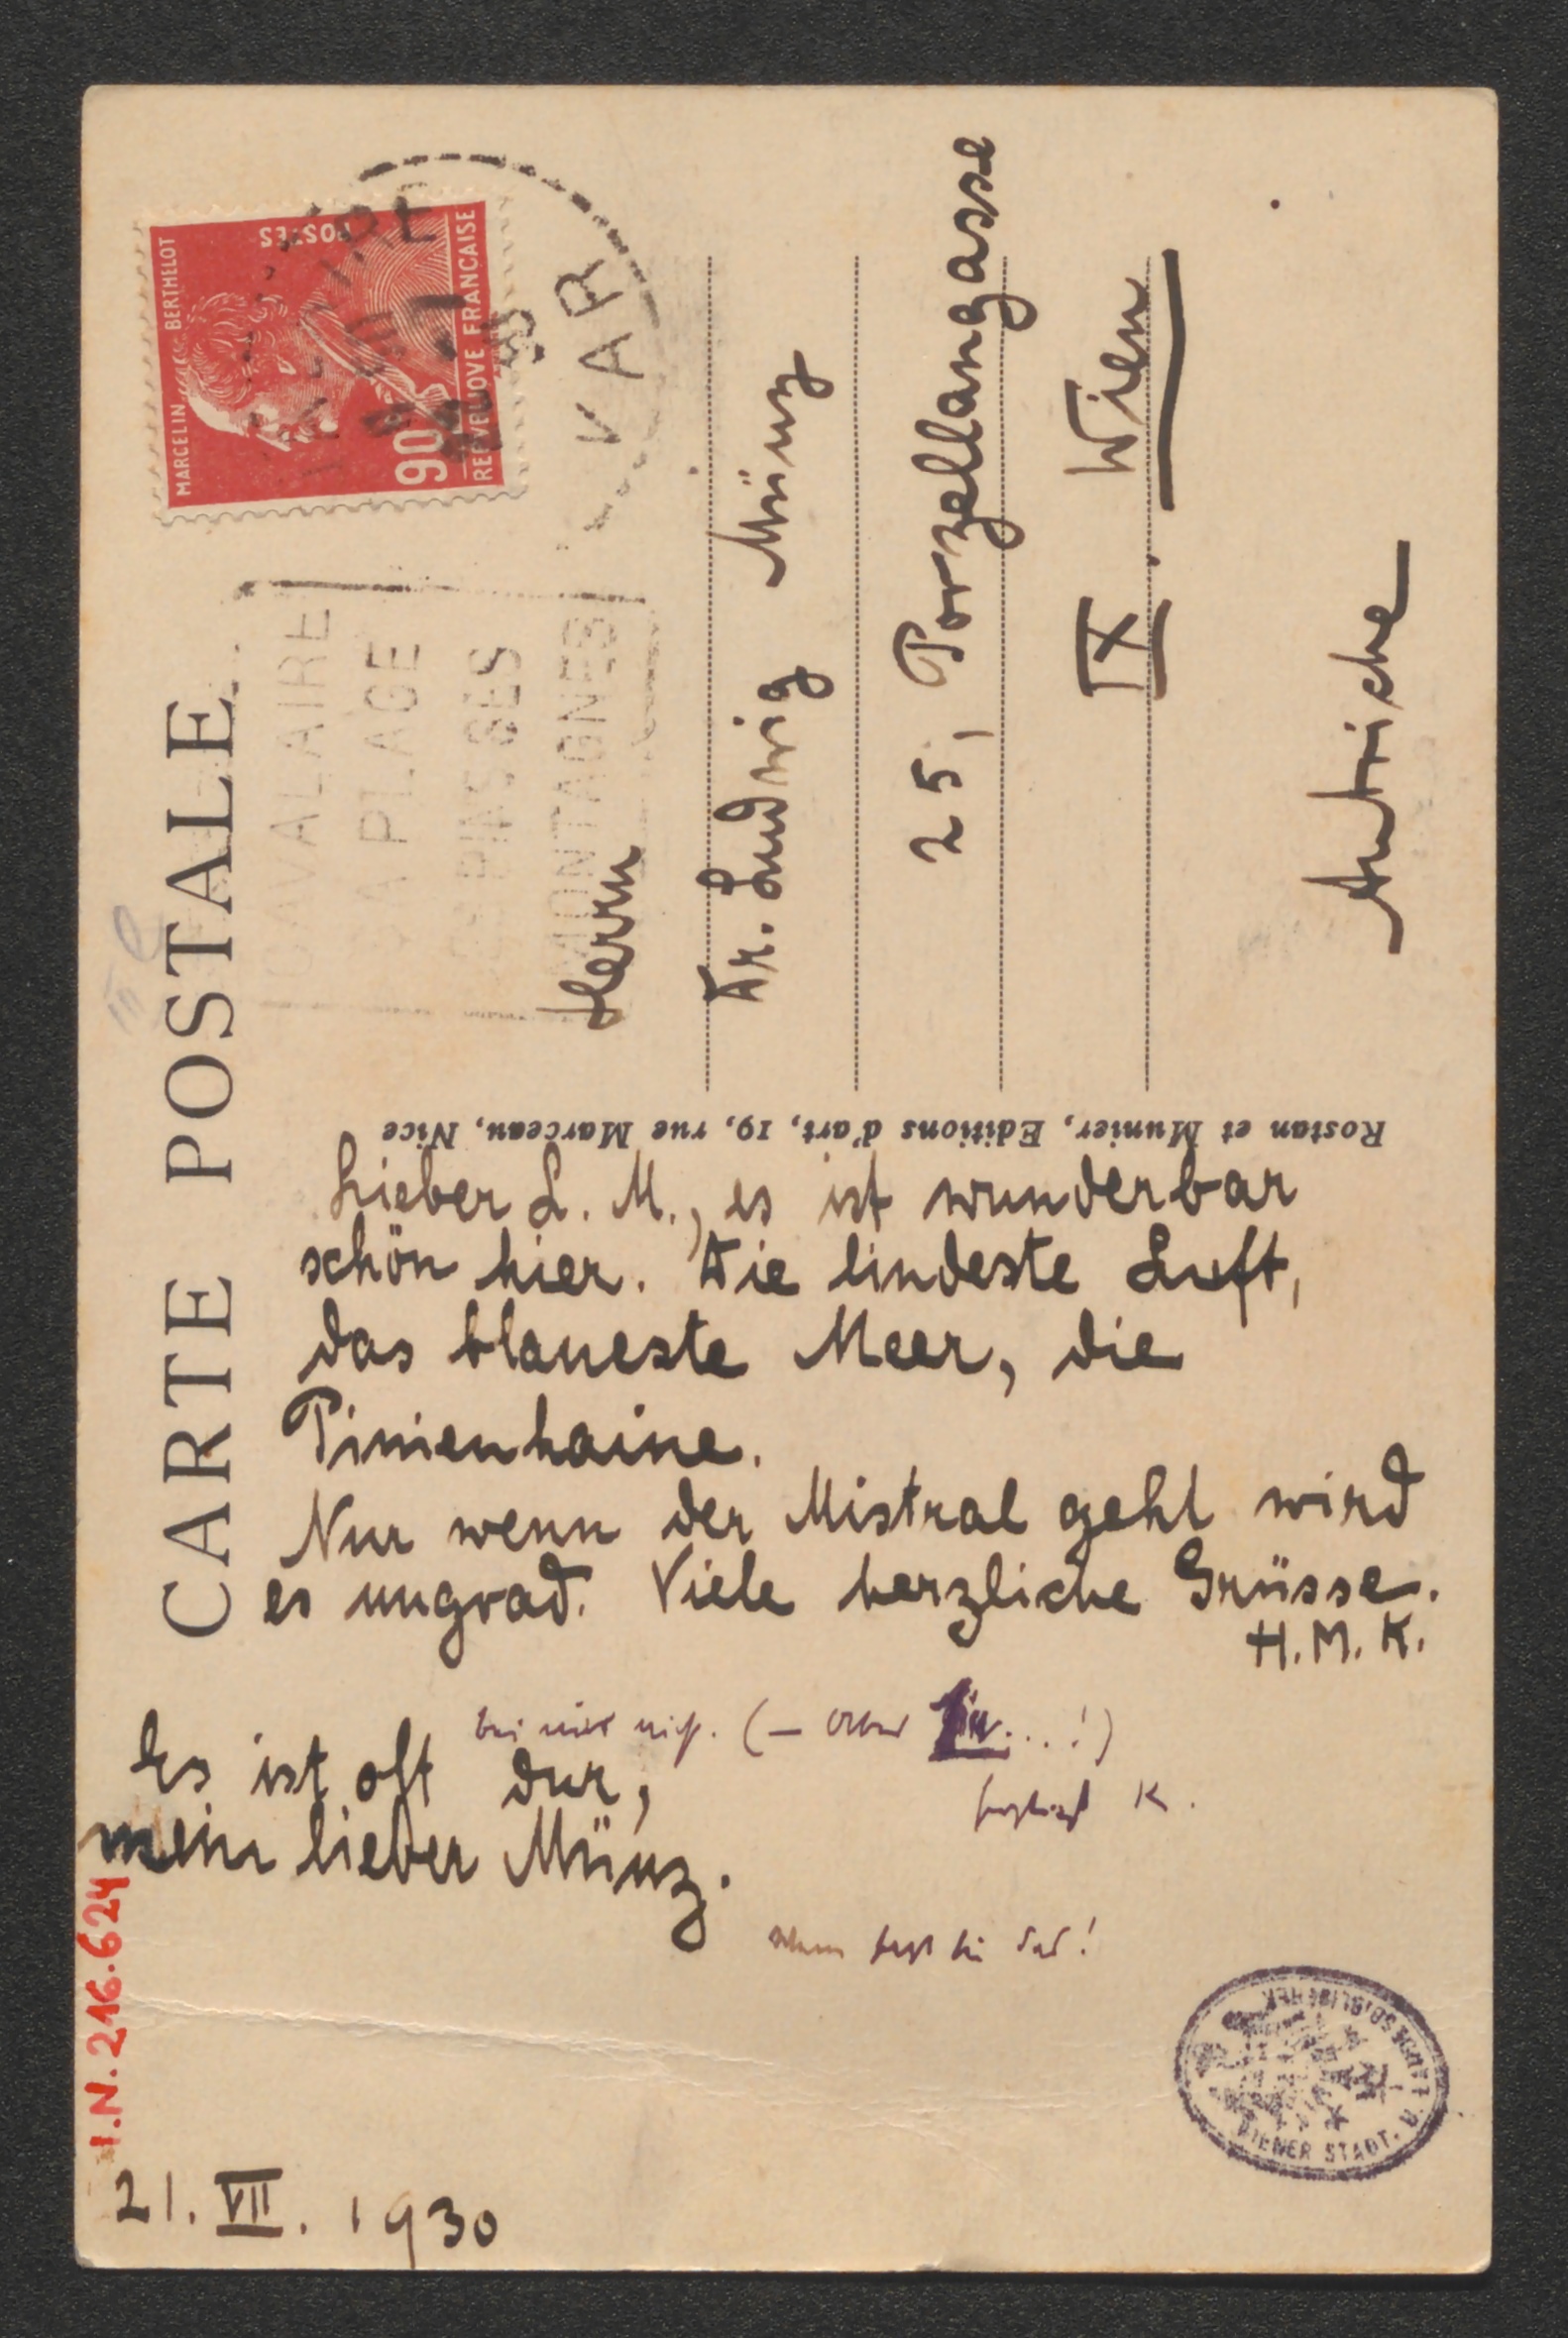 CARTE POSTALE
MARCELIN BERTHELOT
POSTES
90c
FRANCAISE
VAR
CAVALAIRE
PLAGE
SES
MONTAGNES
Herrn
Dr. Ludwig Münz
25, Porzellangasse
IX. Wien
Autriche
Rostan et Munier, Editions d'art, 19, rue Marceau, Nice
Lieber L. M., es ist wunderbar
schön hier. Die lindeste Luft,
das blaueste Meer, die
Pinienhaine.
Nur wenn der Mistral geht wird
es ungrad. Viele herzliche Grüsse.
H. M. K.
bei mir nicht. (— Aber
Es ist oft dur,
herzlichst K.
mein lieber Münz.
I.N. 216.624
21. VII. 1930
WIENER STADT. U. LANDESBIBLIOTHEK